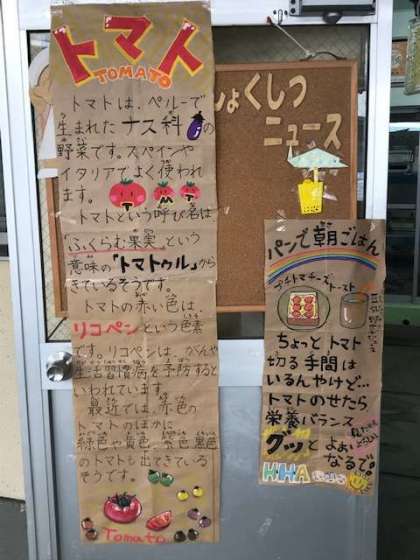 トマト
TOMATO
トマトは、ペルーで
生まれた ナス科 の
野菜です。スペインや
イタリアでよく使われ
ます。
トマトという呼び名は
「ふくらむ果実」という
意味の「トマトゥル」から
きているそうです。
トマトの赤い色は
リコペンという色素
です。リコペンは、がんや
生活習慣病を予防すると
いわれています。
最近では、赤色の
トマトのほかに
緑色や黄色、茶色、黒色
のトマトも出てきている
そうです。
Tomato
しょくしつ
ニュース
パンで朝ごはん
プチトマチーズトースト
ちょっとトマト
切る手間は
いるんやけど…
トマトのせたら
栄養バランス
グッと よぉ
なるで。